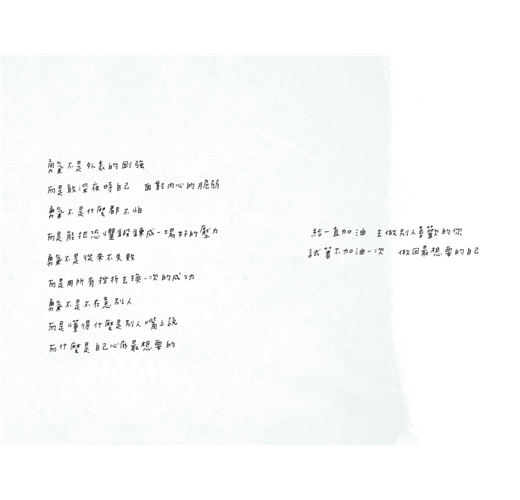 勇氣不是外表的剛強
而是敢深夜時自己 面對內心的脆弱
勇氣不是什麼都不怕
而是能把恐懼鍛鍊成一場好的壓力
勇氣不是從來不失敗
而是用所有挫折去換一次的成功
勇氣不是不在意別人
而是懂得什麼是別人嘴上說
而什麼是自己心底最想要的
給一直加油 去做別人喜歡的你
試著不加油一次 做回最想要的自己